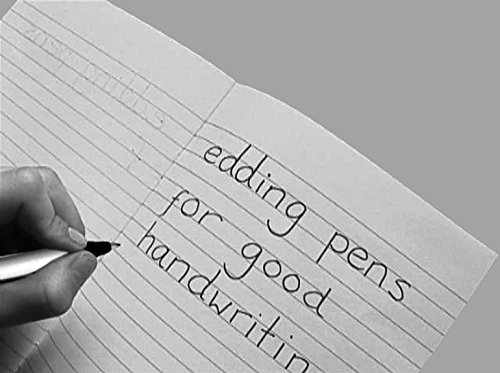 edding pens
for good
handwritin